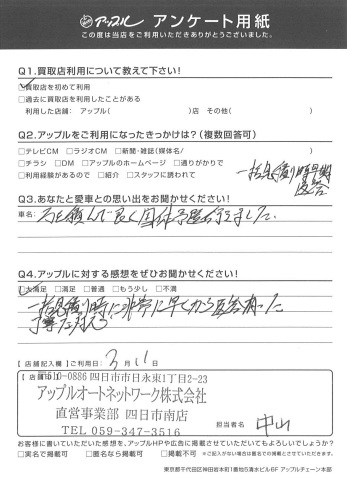 アップル アンケート用紙
この度は当店をご利用いただきありがとうございました。
Q1.買取店利用について教えて下さい!
☑買取店を初めて利用
□過去に買取店を利用したことがある
利用した店舗: アップル( )店 その他( )
Q2.アップルをご利用になったきっかけは?(複数回答可)
□テレビCM □ラジオCM □新聞・雑誌(媒体名/ )
□チラシ □DM □アップルのホームページ □通りがかりで
□利用経験があるので □紹介 □スタッフに誘われて
一括見積り時早期
返答
Q3.あなたと愛車との思い出をお聞かせください!
車名:
Q4.アップルに対する感想をぜひお聞かせください!
☑大満足 □満足 □普通 □もう少し □不満
一括見積り時に非常に早くから返答有った
丁寧な対応
【店舗記入欄】ご利用日: 3月11日
【店舗】
〒510-0886 四日市市日永東1丁目2-23
アップルオートネットワーク株式会社
直営事業部 四日市南店
TEL 059-347-3516
担当者名 中山
お客様に書いていただいた感想を、アップルHPや広告に掲載させていただいてもよろしいでしょうか?
□実名で掲載可 □匿名なら掲載可 □掲載不可 ※ご記入がない場合は匿名での掲載とさせていただきます。
東京都千代田区神田岩本町1番地5清水ビル6F アップルチェーン本部